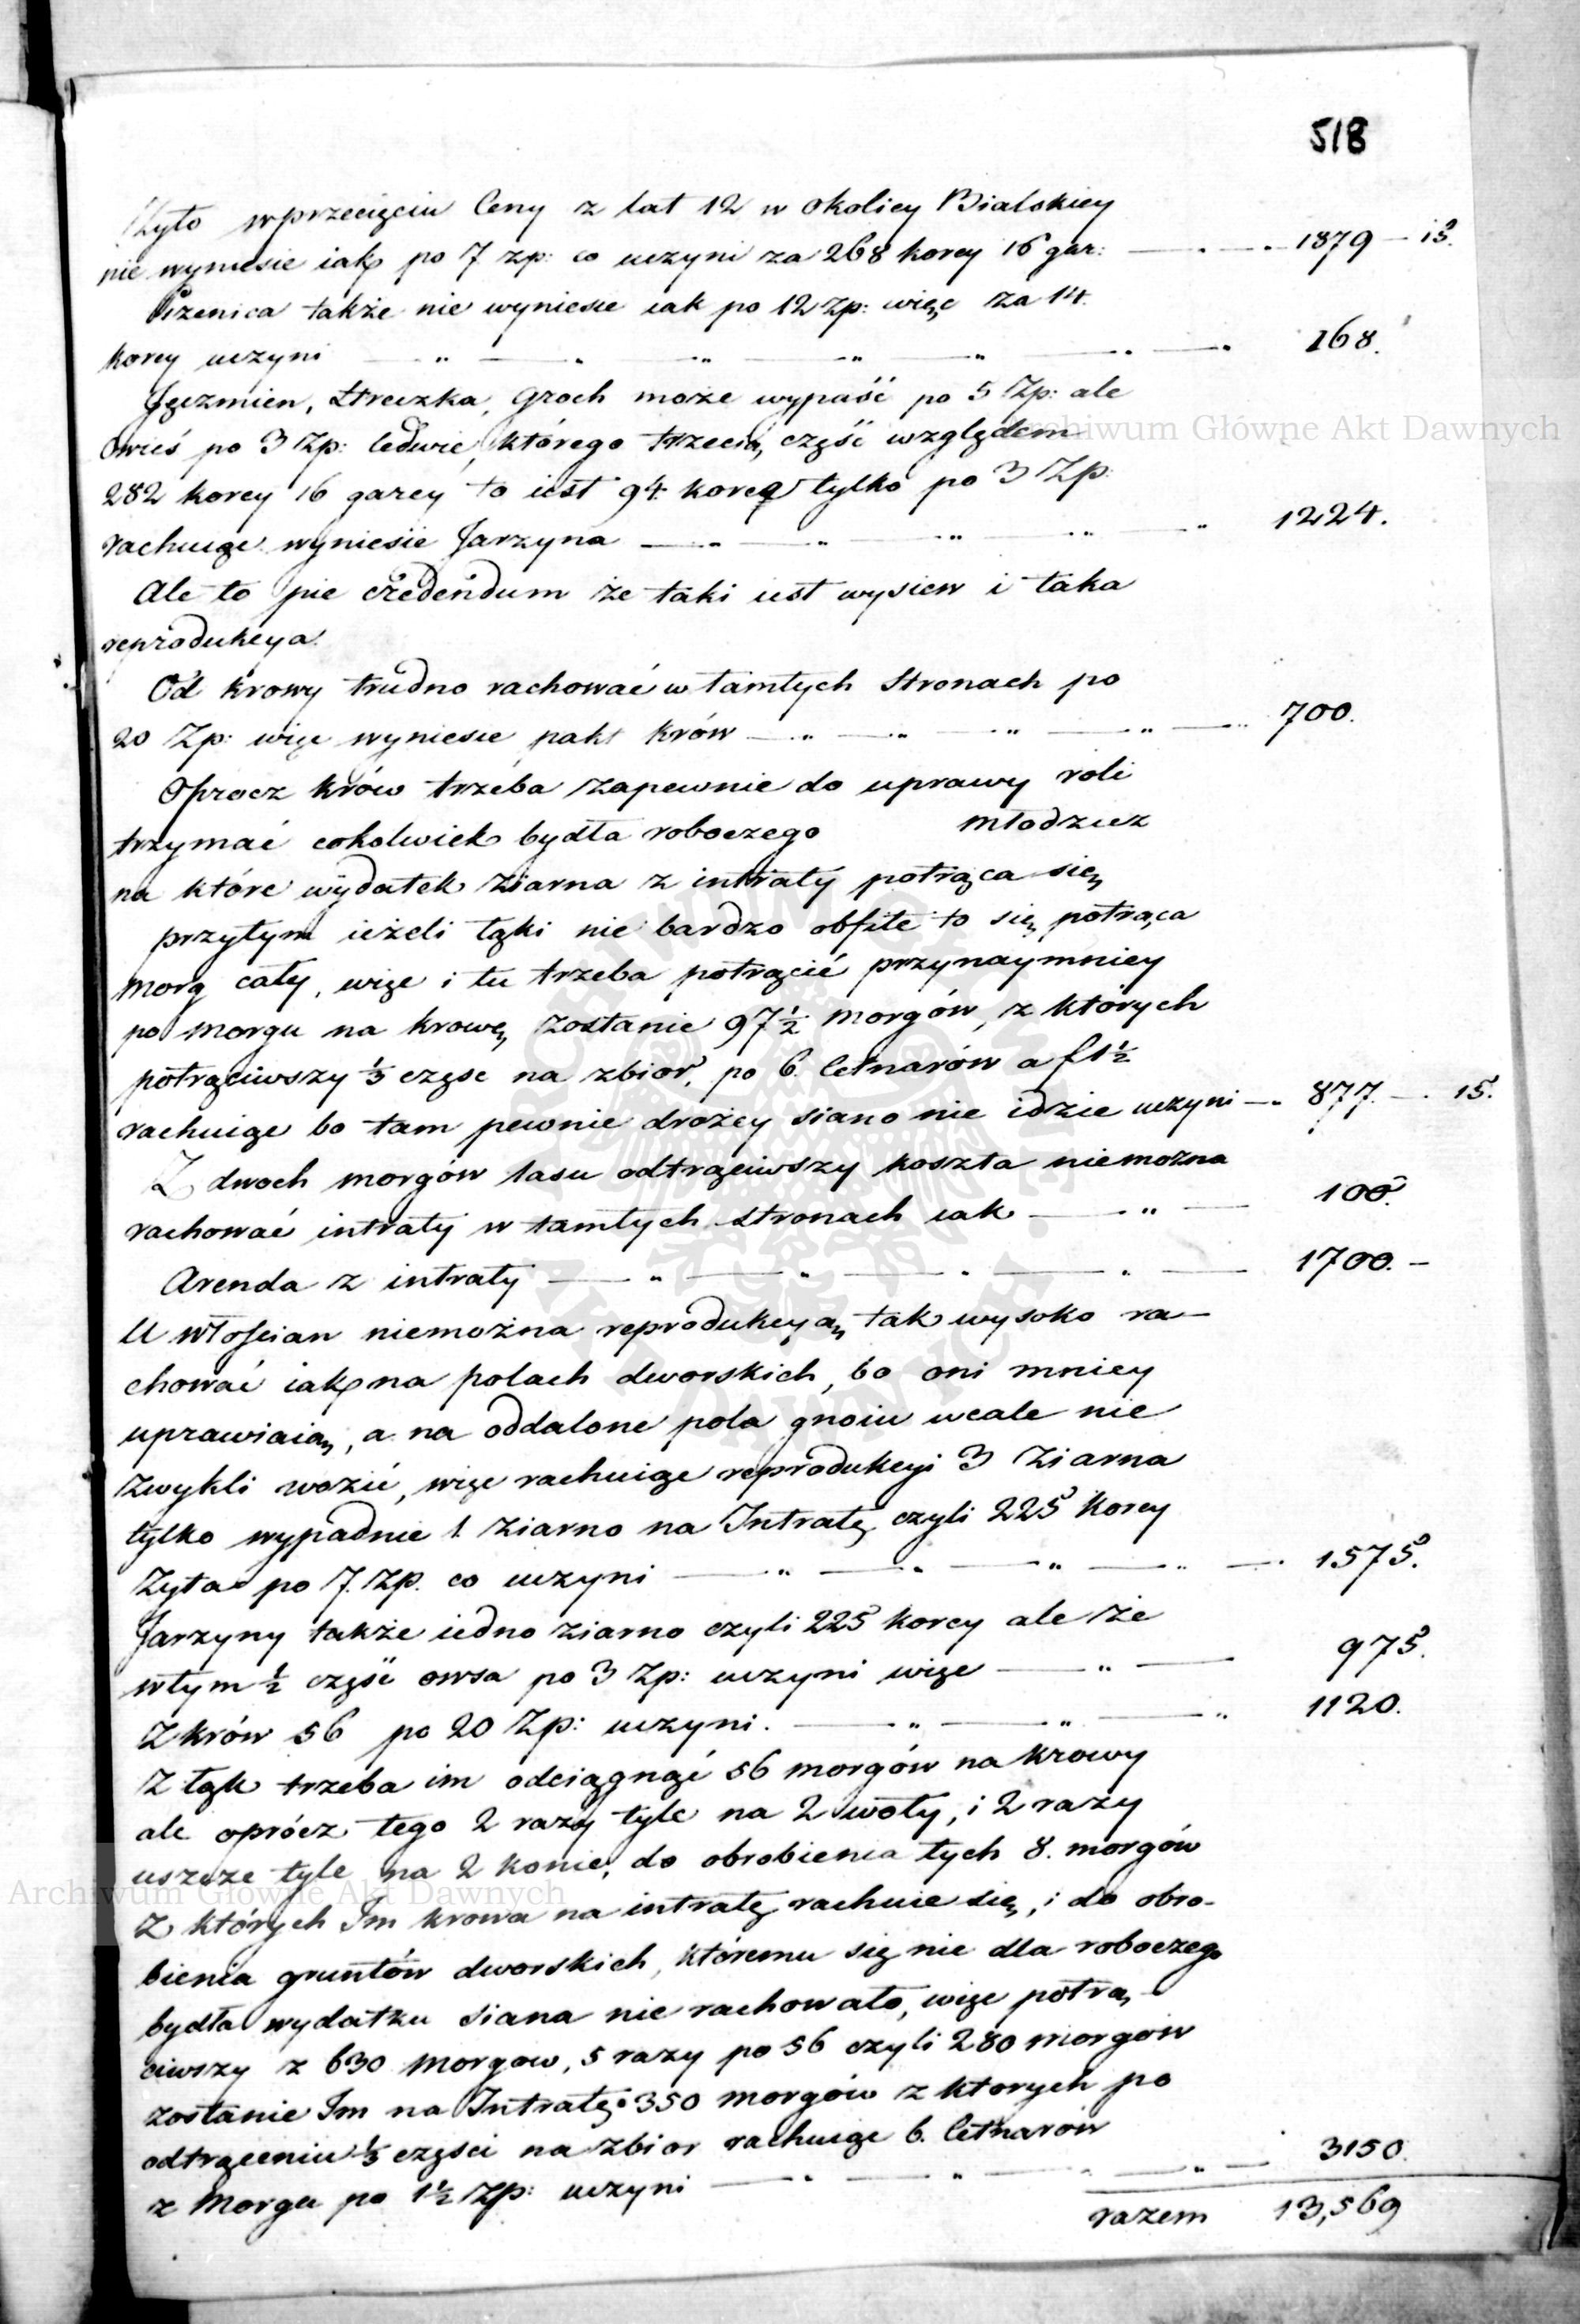 518
Zyto wprzecięciu Ceny z lat 12 w okolicy Bialskiey
nie wyniesie iak po 7 zp: co uczyni za 268 korcy 16 gar: — „ — „ 1879 — 15.
Pszenica także nie wyniesie iak po 12 zp: więc za 14.
korcy uczyni — „ — „ — „ — „ — „ — „ — „ 168.
Jęczmien, Streczka, Groch może wypaść po 5 Zp: ale
Owies po 3 Zp: ledwie, którego trzecią część względem
282 korcy 16 garcy to iest 94 korcy tylko po 3 Zp:
rachuiąc wyniesie Jarzyna — „ — „ — „ — „ — „ 1224.
Ale to nie credendum że taki iest wysiew i taka
reprodukcya.
Od krowy trudno rachować w tamtych Stronach po
20 Zp: więc wyniesie pakt krów — „ — „ — „ — „ — „ 700.
Oprocz krów trzeba zapewnie do uprawy roli
trzymać cokolwiek bydła roboczego młodzież
na które wydatek ziarna z intraty potrąca się
przytym ieżeli łąki nie bardzo obfite to się potrąca
morg cały, więc i tu trzeba potrącić przynaymniey
po morgu na krowę zostanie 97½ morgów, z których
potrąciwszy ⅓ częsc na zbior, po 6. Cetnarów a f 1½
rachuiąc bo tam pewnie drożey siano nie idzie uczyni — „ 877. — „ 15.
Z dwoch morgów lasu odtrąciwszy koszta niemożna
rachować intraty w tamtych stronach iak — „ — 100.
Arenda z intraty — „ — „ — „ — „ — 1700. —
U włościan niemożna reprodukcyą tak wysoko ra-
chować iak na polach dworskich, bo oni mniey
uprawiaią, a na oddalone pola gnoiu wcale nie
zwykli wozić, więc rachuiąc reprodukcyi 3 Ziarna
tylko wypadnie 1 ziarno na Intratę czyli 225 korcy
Zyta po 7. Zp. co uczyni — „ — „ — „ — „ — „ 1575.
Jarzyny także iedno ziarno czyli 225 korcy ale że
wtym ⅓ część owsa po 3 Zp: uczyni więc — „ — 975.
Z krów 56 po 20 Zp: uczyni. — „ — „ — „ 1120.
Z łąk trzeba im odciągnąć 56 morgów na krowy
ale oprócz tego 2 razy tyle na 2 woły, i 2 razy
ieszcze tyle na 2 konie, do obrobienia tych 8. morgów
z których Im krowa na intratę rachuie się, i do obro-
bienia gruntów dworskich, któremu się nie dla roboczego
bydła wydatku siana nie rachowało, więc potrą-
ciwszy z 630 morgow, 5 razy po 56 czyli 280 morgów
zostanie Im na Intratę 350 morgów z ktorych po
odtrąceniu ⅓ części na zbior rachuiąc 6. Cetnarów
z Morga po 1½ Zp: uczyni — „ — „ — „ — „ — 3150.
razem 13,569
Archiwum Główne Akt Dawnych
Archiwum Główne Akt Dawnych